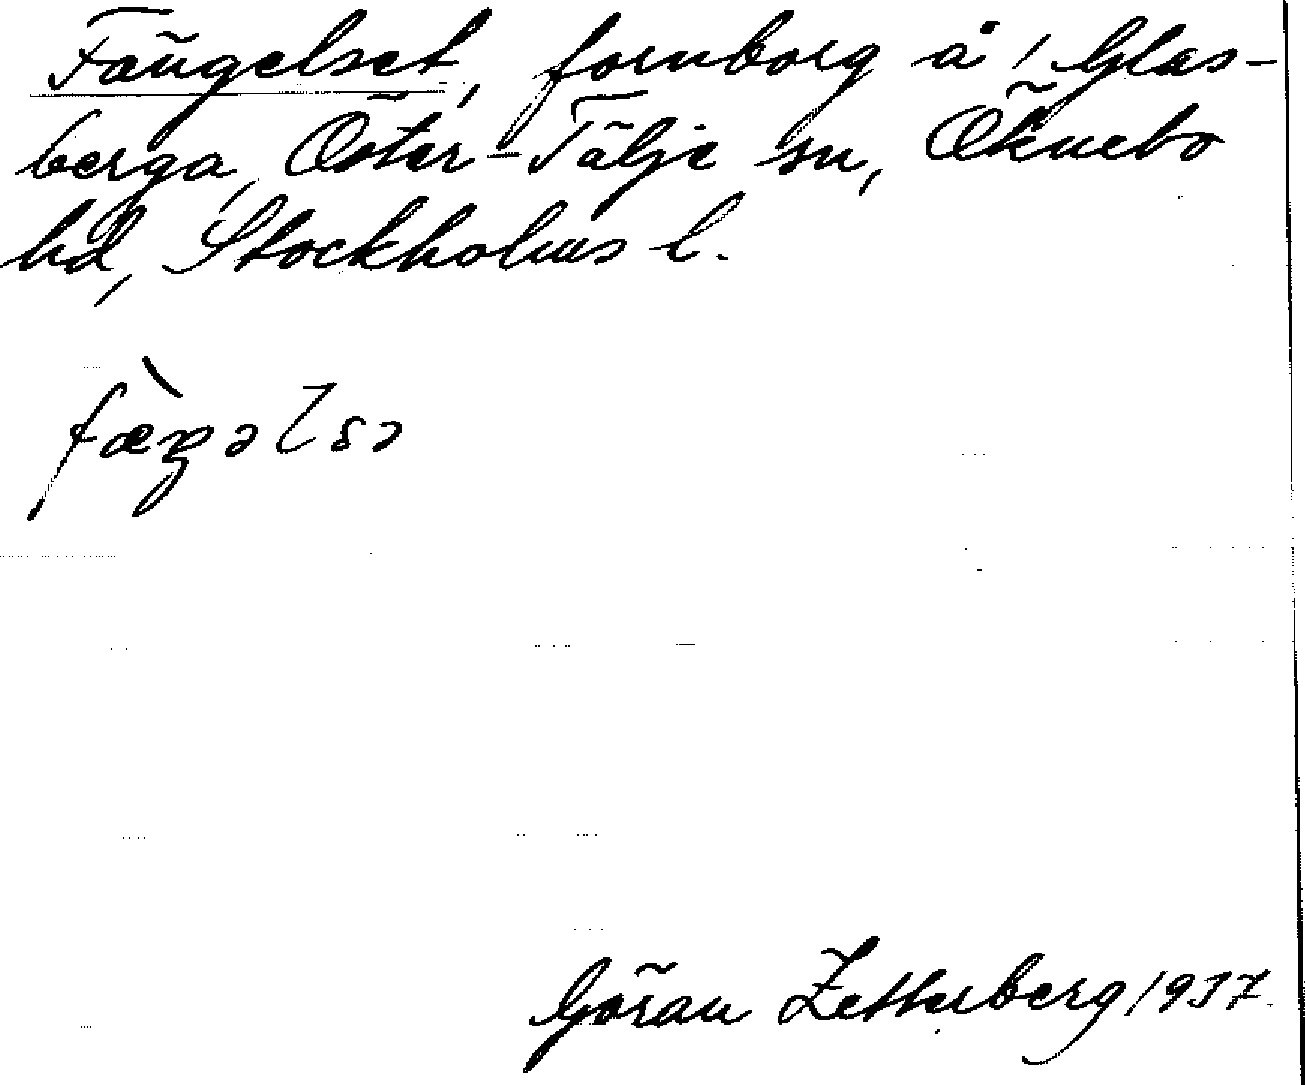 Fängelset, fornborg å 1 Glas-
berga, Öster-Tälje sn, Öknebo
hd, Stockholms l.
fæ̀ŋəlsə
Göran Zetterberg 1937